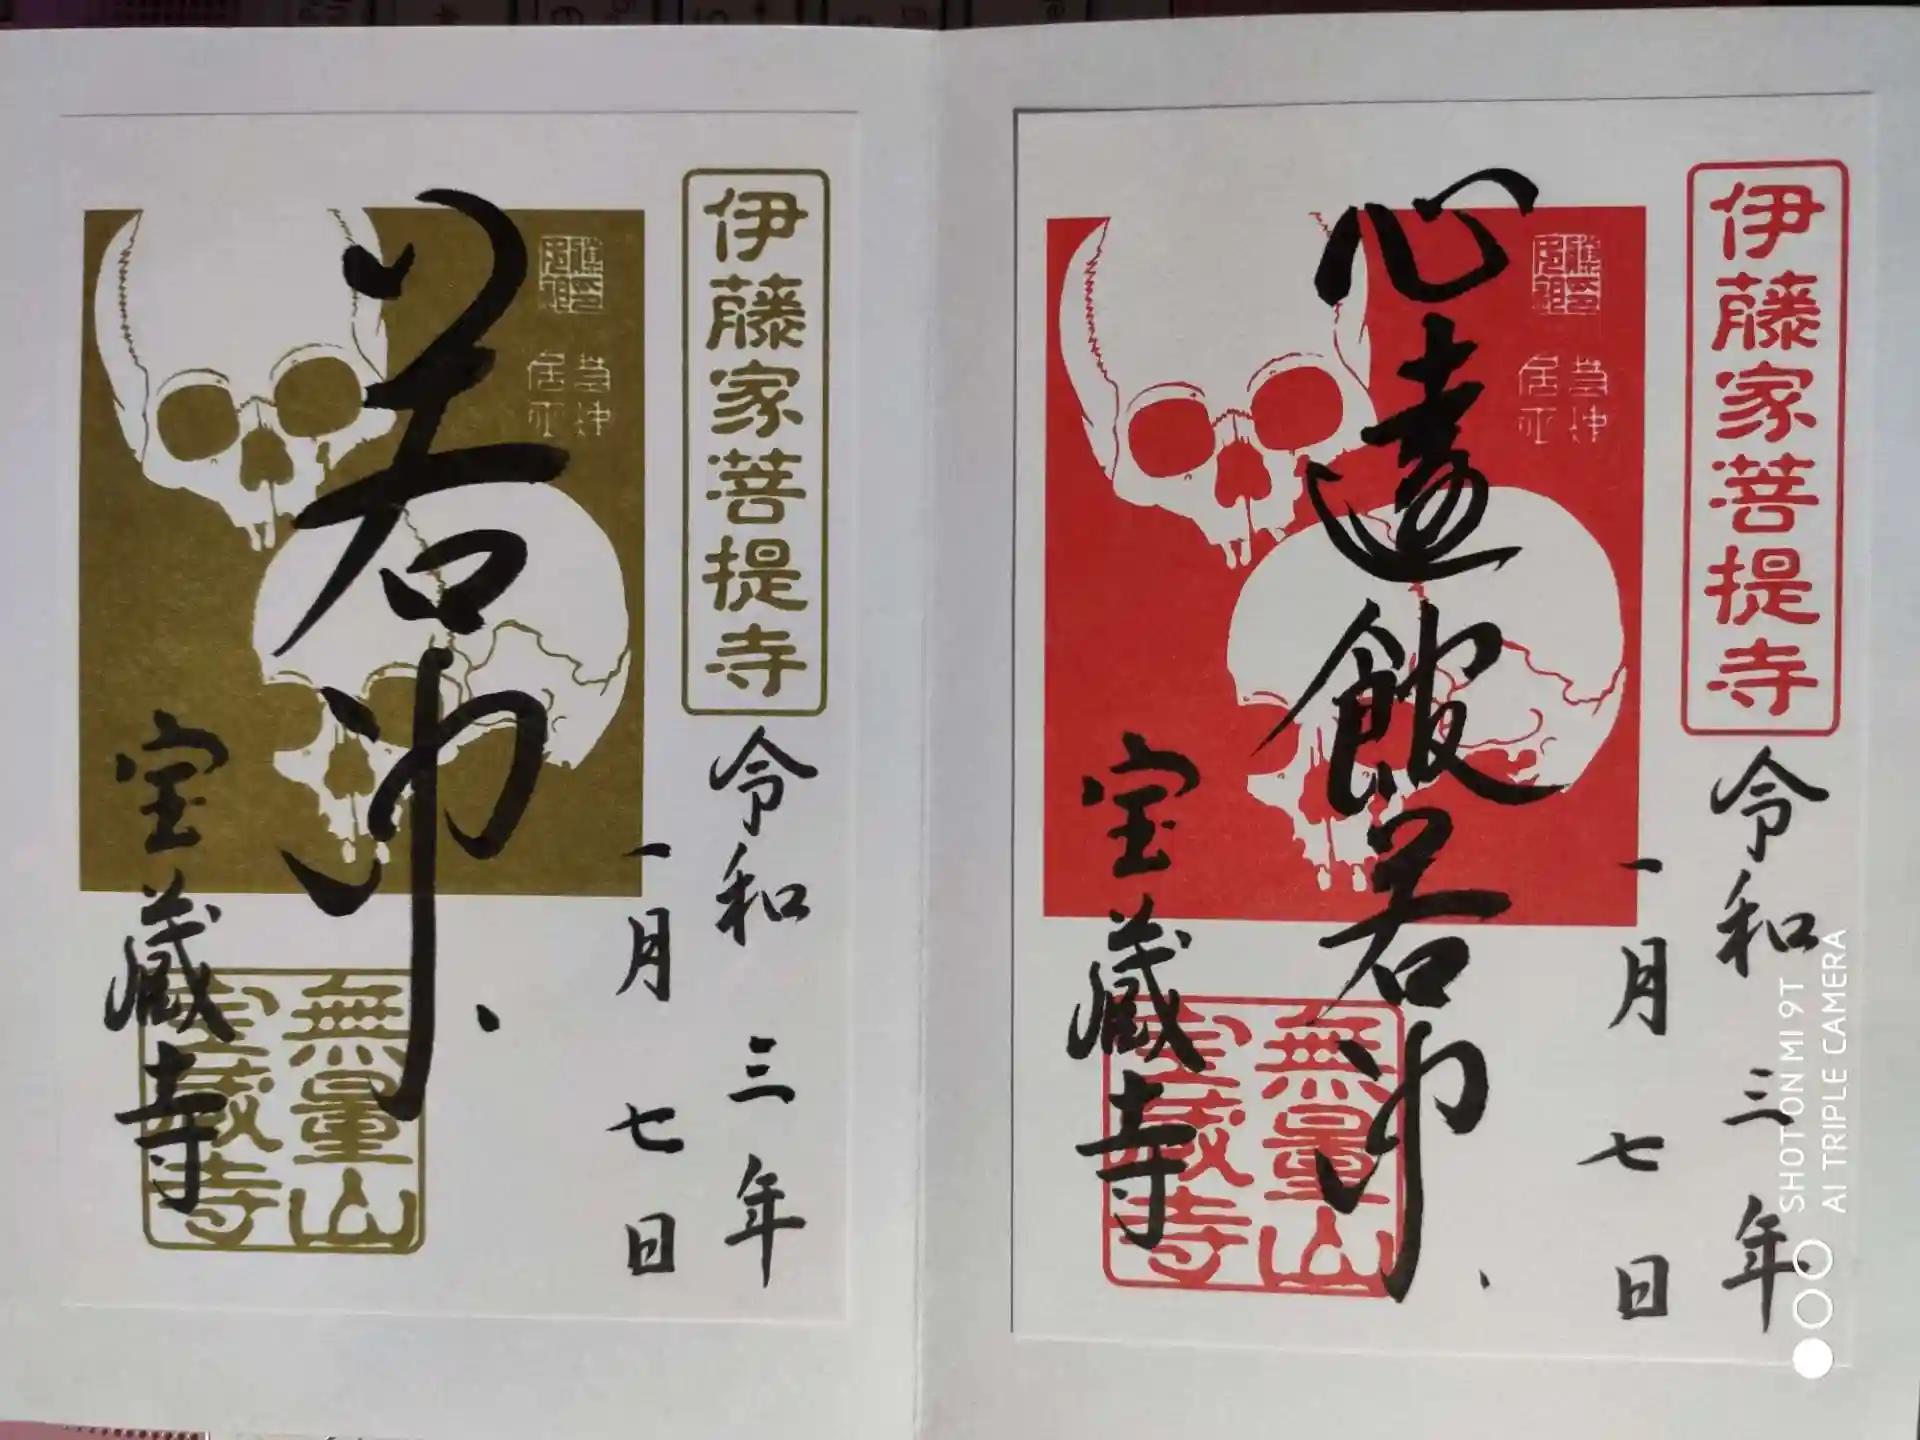 伊藤家菩提寺
令和三年
一月七日
若冲
宝蔵寺
無量山
宝蔵寺
伊藤家菩提寺
令和三年
一月七日
心遠館若冲
宝蔵寺
無量山
宝蔵寺
SHOT ON MI 9T
AI TRIPLE CAMERA